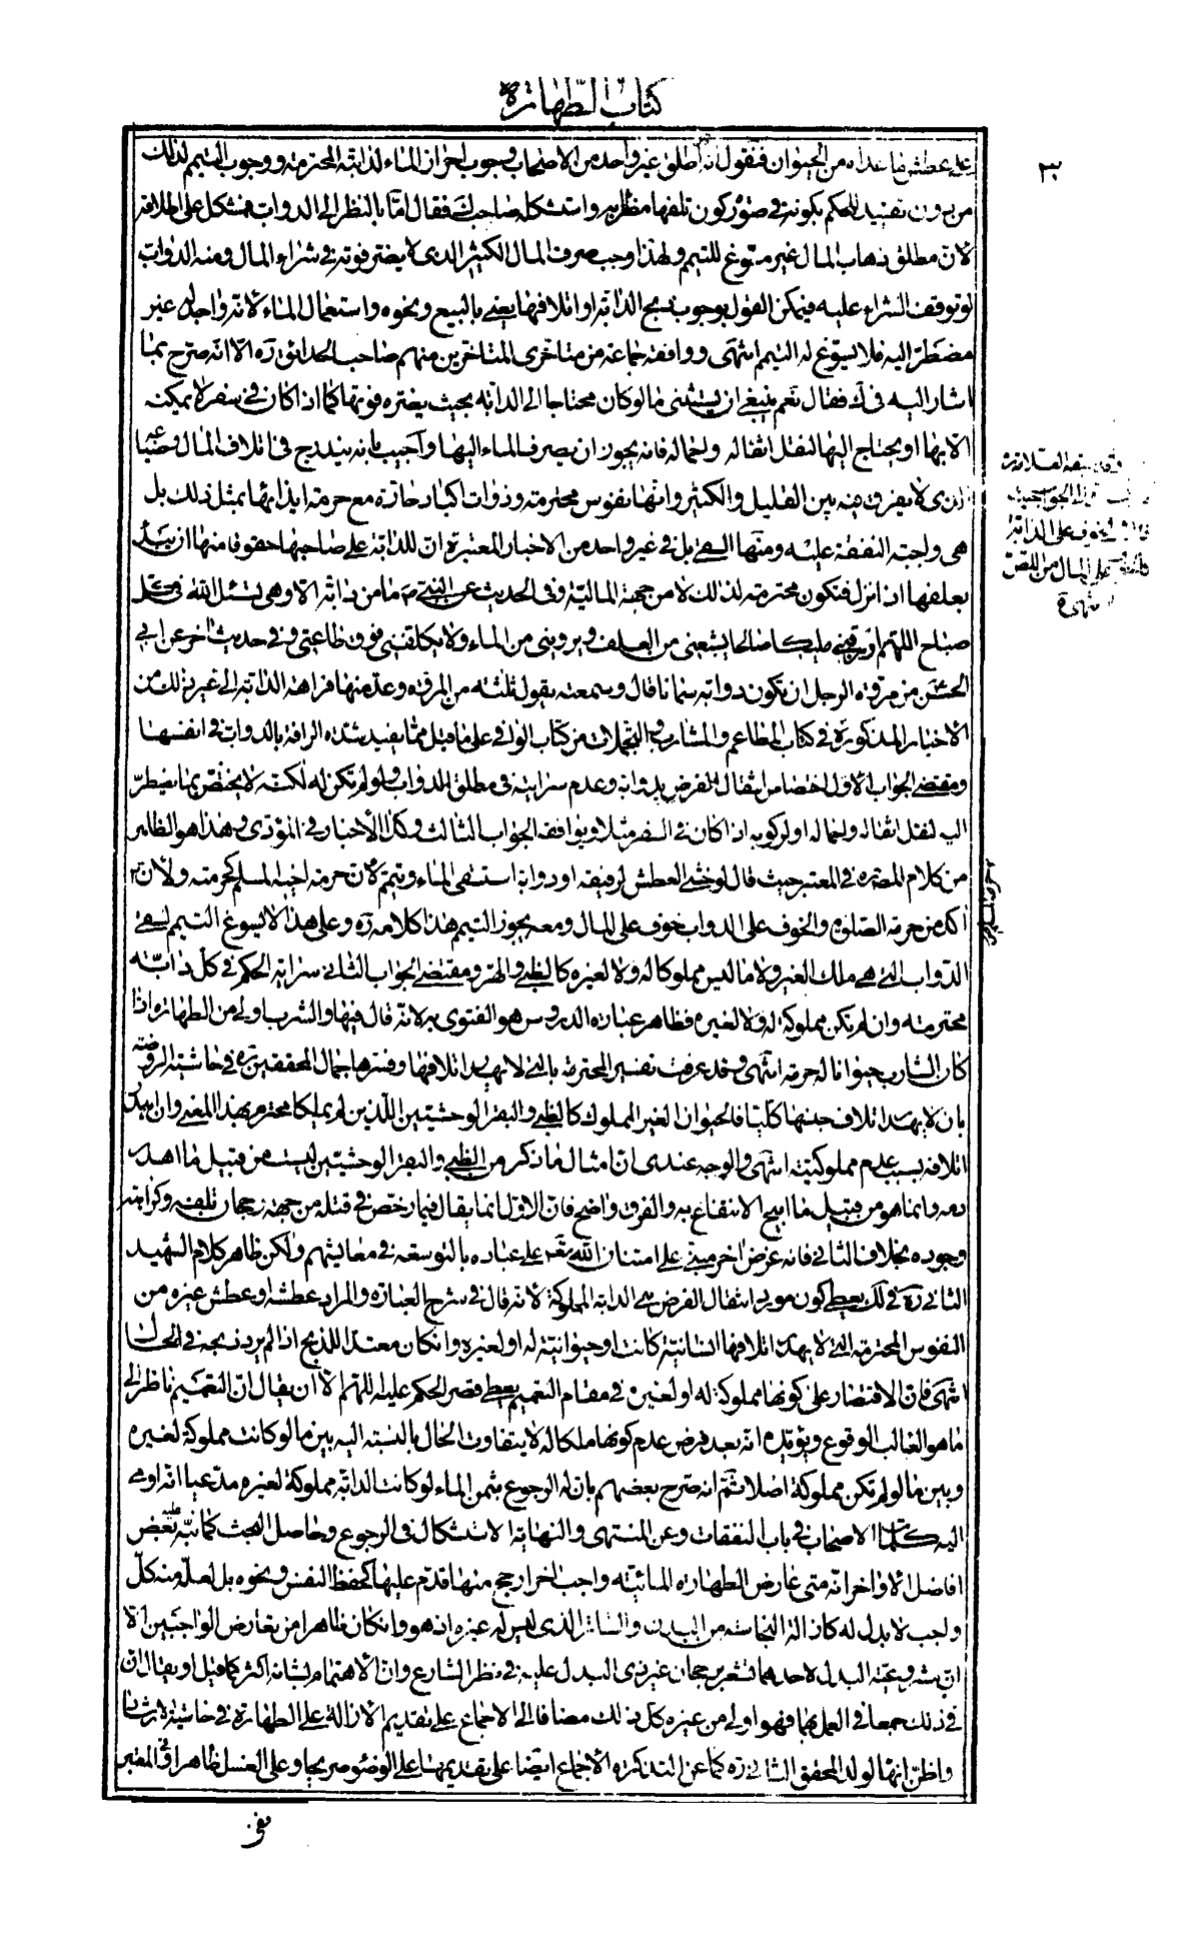 كتاب الطهارة
على عطش ما عداه من الحيوان فنقول انه اطلق غير واحد من الاصحاب وجوب احراز الماء لدابته المحترمة ووجوب التيمم لذلك
من دون تقييد للحكم بكونه في صورة كون تلفها مضرا به واستشكله صاحب لك فقال اما بالنظر الى الدواب فمشكل على اطلاقه
لان مطلق ذهاب المال غير مسوغ للتيمم ولهذا وجب صرف المال الكثير الذى لا يضر فوته في شراء المال ومنه الدواب
لو توقف الشراء عليه فيمكن القول بوجوب ذبح الدابة او اتلافها يعنى بالبيع ونحوه واستعمال الماء لانه واجد له غير
مضطر اليه فلا يسوغ له التيمم انتهى ووافقه جماعة من متاخرى المتاخرين منهم صاحب الحدائق ره الا انه صرح بما
اشار اليه فى لك فقال نعم ينبغى ان يستثنى ما لو كان محتاجا الى الدابة بحيث يضره فوتها كما اذا كان فى سفر لا يمكنه
الا بها او يحتاج اليها لنقل اثقاله واحماله فانه يجوز ان يصرف الماء اليها واجيب بانه يندرج فى اتلاف المال وضياعه
الذى لا يفرق فيه بين القليل والكثير وانها نفوس محترمة وذوات اكباد حارة مع حرمة ايذائها بمثل ذلك بل
هى واجبة النفقة عليه ومنها السقى بل فى غير واحد من الاخبار المعتبرة ان للدابة على صاحبها حقوقا منها ان يبدء
بعلفها اذا نزل فتكون محترمة لذلك لا من جهة المالية وفى الحديث عن النبى ص ما من دابة الا وهى تسئل الله فى كل
صباح اللهم ارزقنى مليكا صالحا يشبعنى من العلف ويروينى من الماء ولا يكلفنى فوق طاعتى وفى حديث اخر عن ابى
الحسن من مروة الرجل ان يكون دوابه سمانا قال وسمعته يقول ثلثة من المروة وعد منها فراهة الدابة الى غير ذلك من
الاخبار المذكورة فى كتاب المطاعم والمشارب والتجملات من كتاب الوافى على ما قيل مما يفيد شدة الرافة بالدواب فى انفسها
ومقتضى الجواب الاول اختصاص انتقال الفرض بدوابه وعدم سرايته فى مطلق الدواب ولو لم تكن له لكنه لا يختص بما يضطر
اليه لنقل اثقاله واحماله او لركوبه اذا كان فى السفر مثلا ويوافقه الجواب الثالث وكذا الاخبار فى المؤدى وهذا هو الظاهر
من كلام المصنف ره فى المعتبر حيث قال لو خشى العطش لرفيقه او دوابه استبقى الماء وتيمم لان حرمة اخيه المسلم كحرمته ولان
اكد من حرمة الصلوة والخوف على الدواب خوف على المال ومعه يجوز التيمم هذا كلامه ره وعلى هذا لا يسوغ التيمم لسقى
الدواب التى هى ملك الغير ولا ما ليس مملوكا له ولا لغيره كالظبى والهر ومقتضى الجواب الثانى سراية الحكم فى كل دابة
محترمة وان لم تكن مملوكة له ولا لغيره فظاهر عبارة الدروس هو الفتوى به لانه قال فيها والشرب اولى من الطهارة اذا
كان الشارب حيوانا له حرمة انتهى وقد عرفت تفسير المحترمة بالتى لا يهدر اتلافها وفسرها جمال المحققين ره فى حاشية الروضة
بان لا يهدر اتلاف جنسها كليا فالحيوان الغير المملوك كالظبى والبقر الوحشيين اللذين لم يملكا محترم بهذا المعنى وان لم يكن
اتلافه بسبب عدم مملوكيته انتهى والوجه عندى ان امثال ما ذكر من الظبى والبقر الوحشيين ليست من قبيل ما اهدر
دمه وانما هو من قبيل ما ابيح الانتفاع به والفرق واضح فان الاول انما يقال فيما رخص فى قتله من جهة رجحان تلفه وكراهة
وجوده بخلاف الثانى فانه غرض اخر مبنى على امتنان الله تعم على عباده بالتوسعة فى معايشهم ولكن ظاهر كلام الشهيد
الثانى ره فى لك يعطى كون مورد انتقال الفرض هى الدابة المملوكة لانه قال فى شرح العبارة والمراد عطشه او عطش غيره من
النفوس المحترمة التى لا يهدر اتلافها انسانية كانت او حيوانية له او لغيره وان كان معتدا للذبح اذا لم يرد ذبحه فى الحال
انتهى فان الاقتصار على كونها مملوكة له او لغيره فى مقام التعميم يعطى قصر الحكم عليه اللهم الا ان يقال ان التعميم ناظر الى
ما هو الغالب الوقوع ويؤيده انه بعد فرض عدم كونها ملكا له لا يتفاوت الحال بالنسبة اليه بين ما لو كانت مملوكة لغيره
وبين ما لو لم تكن مملوكة اصلا ثم انه صرح بعضهم بان له الرجوع بثمن الماء لو كانت الدابة مملوكة لغيره مدعيا انه اومى
اليه كلمات الاصحاب فى باب النفقات وعن المنتهى والنهاية الاستشكال فى الرجوع وحاصل البحث كما نبه عليه بعض
افاضل الاواخر انه متى عارض الطهارة المائية واجب اخر ارجح منها قدم عليها كحفظ النفس ونحوه بل لعله منه كل
واجب لا بدل له كازالة النجاسة من البدن والساتر الذى ليس له غيره اذ هو وان كان ظاهرا من تعارض الواجبين الا
ان مشروعية البدل لاحدهما تشعر برجحان غير ذى البدل عليه فى نظر الشارع وان الاهتمام بشانه اكثر كما قيل او يقال ان
فى ذلك جمعا فى العمل بهما فهو اولى من غيره كل ذلك مضافا الى الاجماع على تقديم الازالة على الطهارة فى حاشية الارشاد
واظن انها لولد المحقق الثانى ره كما عن التذكرة الاجماع ايضا على تقديمها على الوضوء صريحا وعلى الغسل ظاهرا وفى المعتبر
نفى